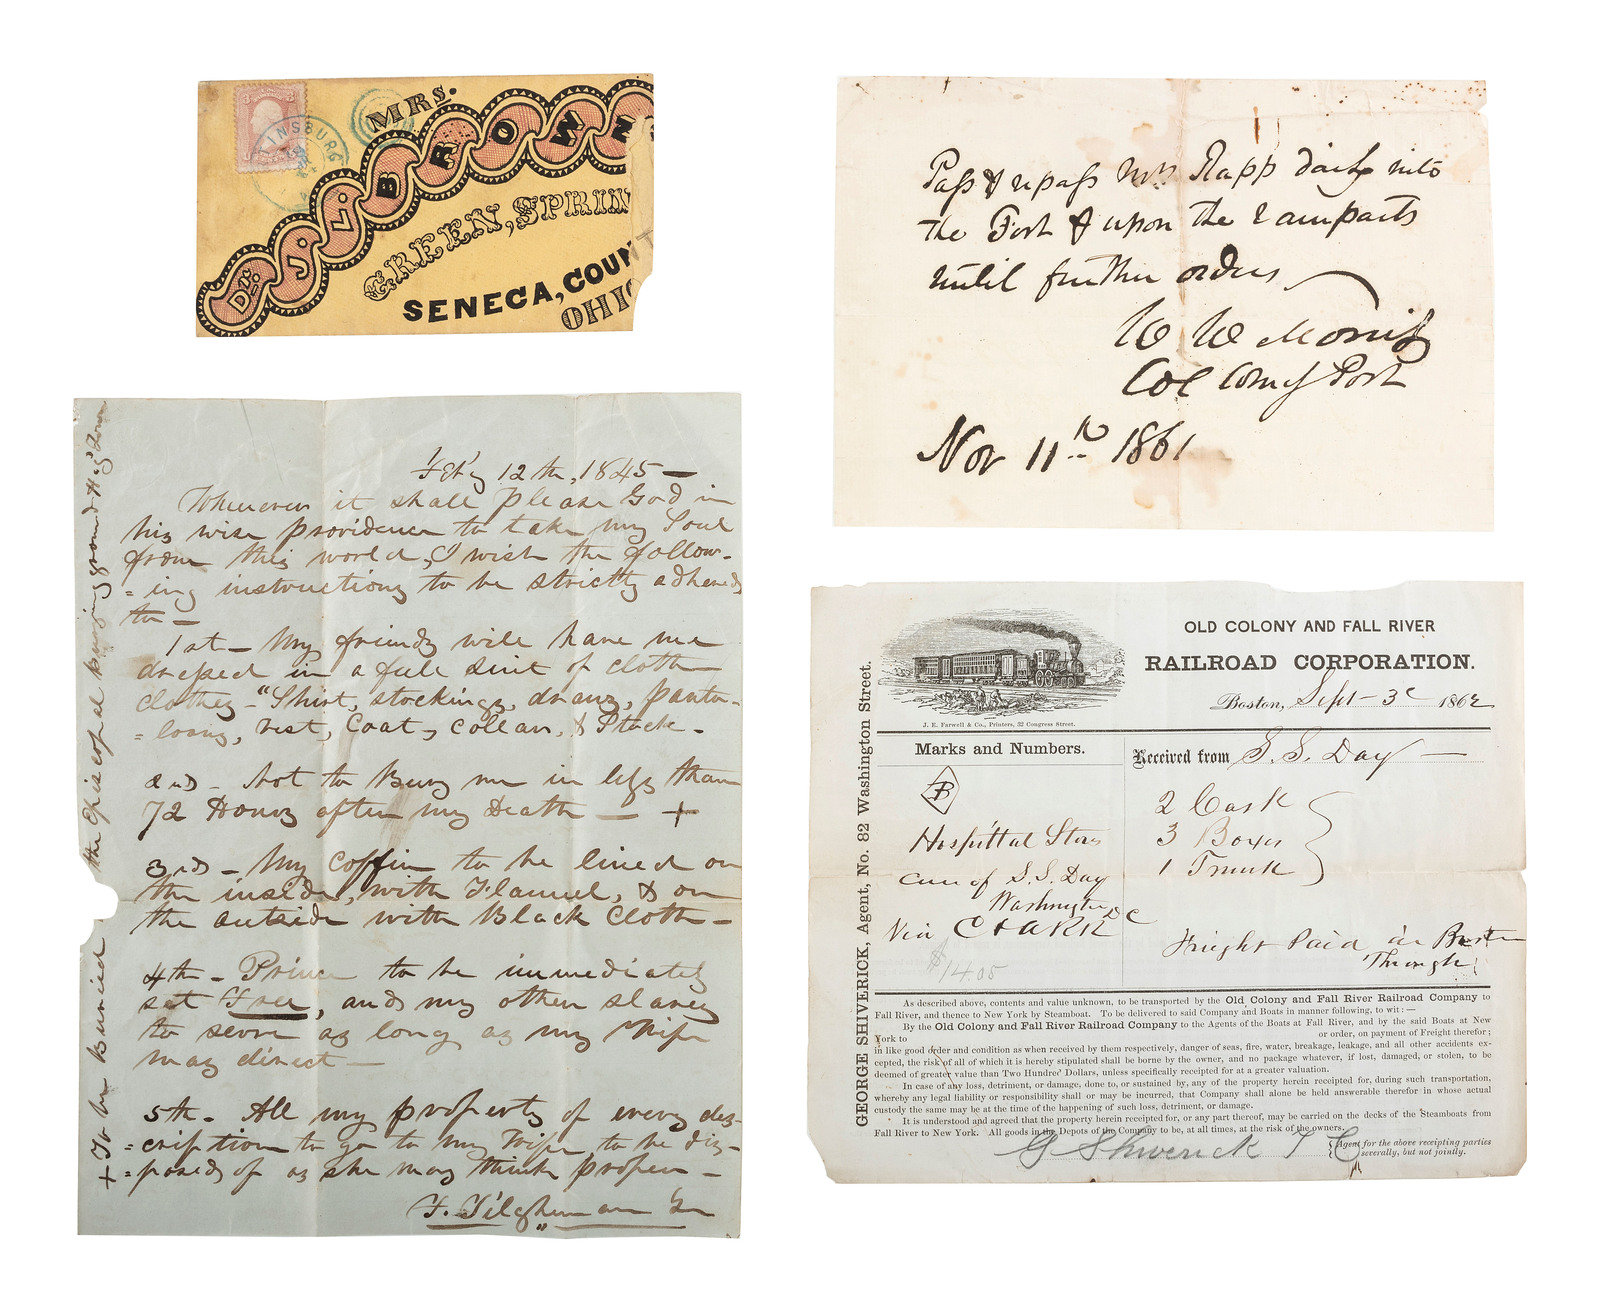 MRs.
DR. J. L. BROWN
GREEN, SPRIN
SENECA, COUNT
OHIO
INSBURG
Pass & repass Mrs Rapp daily into
the Fort & upon the ramparts
until further orders
W W Morris
Col Comg Post
Nov 11th 1861
Feb'y 12th, 1845 —
Whenever it shall please God in
his wise providence to take my Soul
from this world, I wish the follow-
=ing instructions to be strictly adhered
to —
1st — My friends will have me
dressed in a full suit of cloth
clothes — "Shirt, stockings, draws, panta-
=loons, vest, Coat, collar, & Stock.
2nd — Not to bury me in less than
72 Hours after my Death — +
3rd — My coffin to be lined on
the inside, with Flannel, & on
the outside with Black Cloth —
4th — Prince to be immediately
set Free, and my other slaves
to serve as long as my Wife
may direct —
5th — All my property of every des-
=cription to go to my Wife to be dis-
=posed of as she may think proper —
F. Tilghman Jr
+ To be Buried the Episcopal burying ground
OLD COLONY AND FALL RIVER
RAILROAD CORPORATION.
Boston, Sept 3d 1862
J. E. Farwell & Co., Printers, 32 Congress Street.
GEORGE SHIVERICK, Agent, No. 82 Washington Street.
Marks and Numbers.
B
Hospittal Stors
care of S. S. Day
Washington DC
Via CLARK
$14.05
Received from S. S. Day —
2 Cask
3 Boxes
1 Trunk
Freight Paid in Boston
Through
As described above, contents and value unknown, to be transported by the Old Colony and Fall River Railroad Company to
Fall River, and thence to New York by Steamboat. To be delivered to said Company and Boats in manner following, to wit: —
By the Old Colony and Fall River Railroad Company to the Agents of the Boats at Fall River, and by the said Boats at New
York to or order, on payment of Freight therefor;
in like good order and condition as when received by them respectively, danger of seas, fire, water, breakage, leakage, and all other accidents ex-
cepted, the risk of all of which it is hereby stipulated shall be borne by the owner, and no package whatever, if lost, damaged, or stolen, to be
deemed of greater value than Two Hundred Dollars, unless specifically receipted for at a greater valuation.
In case of any loss, detriment, or damage, done to, or sustained by, any of the property herein receipted for, during such transportation,
whereby any legal liability or responsibility shall or may be incurred, that Company shall alone be held answerable therefor in whose actual
custody the same may be at the time of the happening of such loss, detriment, or damage.
It is understood and agreed that the property herein receipted for, or any part thereof, may be carried on the decks of the Steamboats from
Fall River to New York. All goods in the Depots of the Company to be, at all times, at the risk of the owners.
G Shiverick
Agent for the above receipting parties
severally, but not jointly.